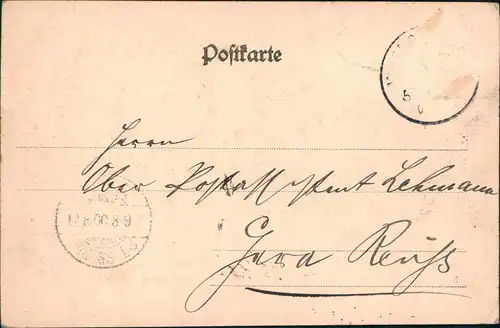 Postkarte
5
Herrn
Ober Postassistent Lehmann
12.8.00 8-9
Gera Reuss